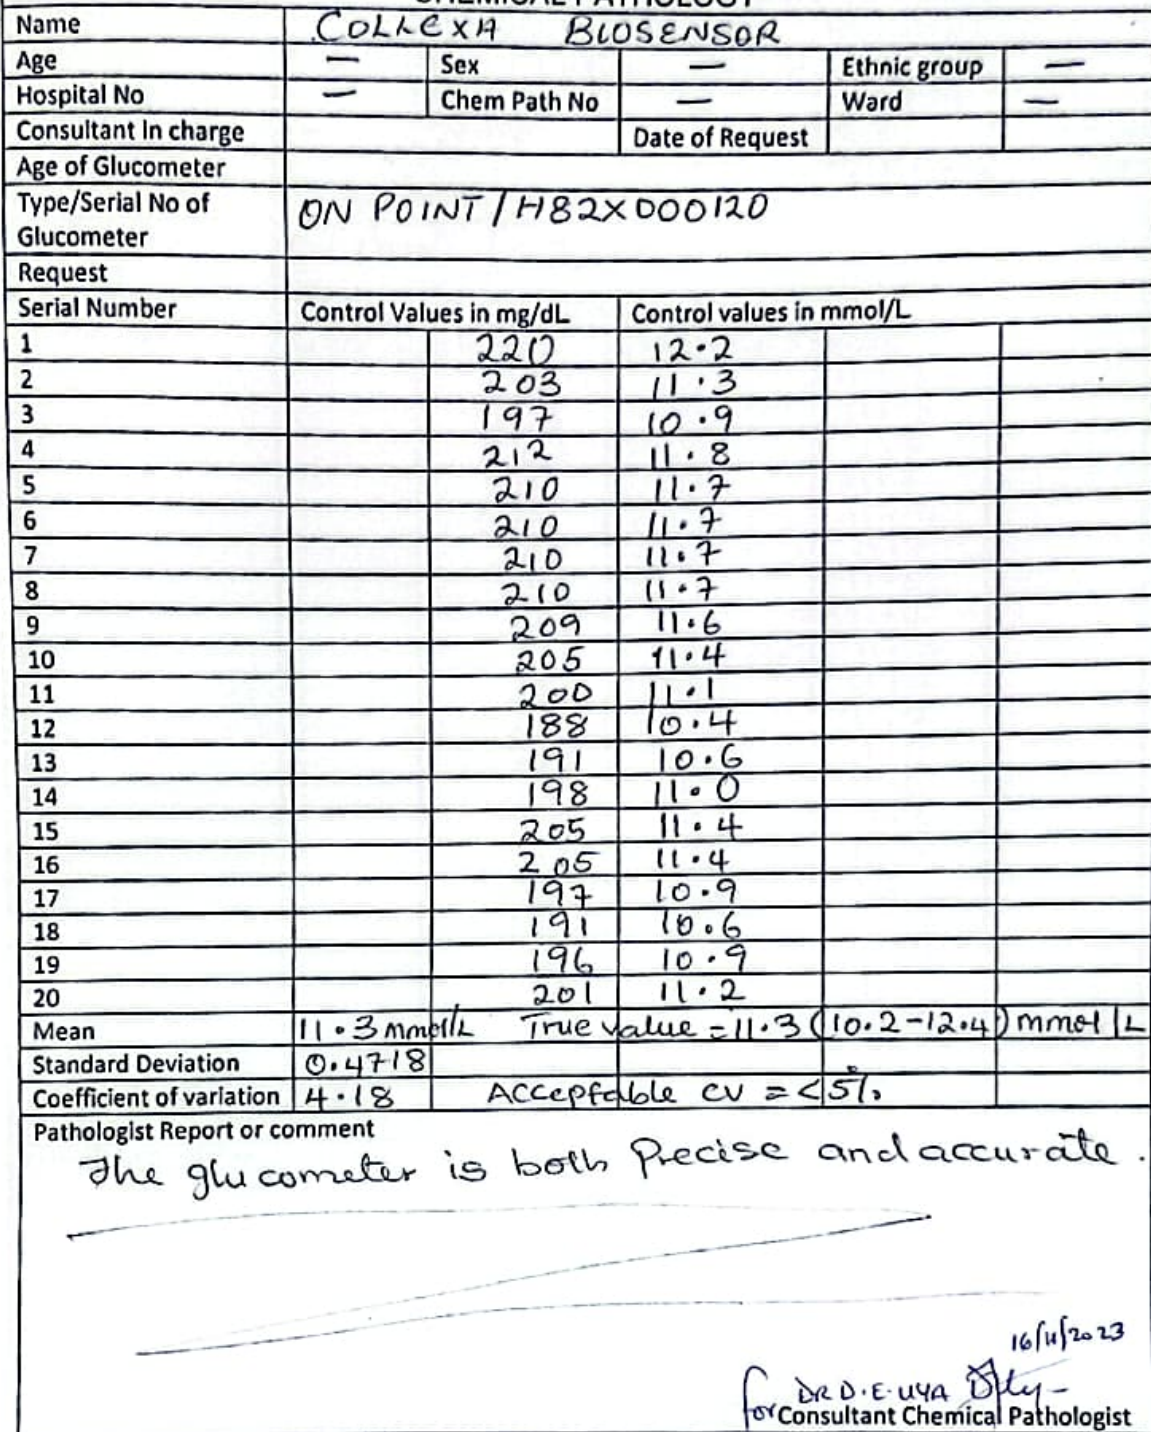 CHEMICAL PATHOLOGY
Name COLLEXA BIOSENSOR
Age — Sex — Ethnic group —
Hospital No — Chem Path No — Ward —
Consultant In charge Date of Request
Age of Glucometer
Type/Serial No of Glucometer ON POINT/H82X000120
Request
Serial Number Control Values in mg/dL Control values in mmol/L
1 220 12.2
2 203 11.3
3 197 10.9
4 212 11.8
5 210 11.7
6 210 11.7
7 210 11.7
8 210 11.7
9 209 11.6
10 205 11.4
11 200 11.1
12 188 10.4
13 191 10.6
14 198 11.0
15 205 11.4
16 205 11.4
17 197 10.9
18 191 10.6
19 196 10.9
20 201 11.2
Mean 11.3 mmol/L True value = 11.3 (10.2-12.4) mmol/L
Standard Deviation 0.4718
Coefficient of variation 4.18 Acceptable CV = <5%
Pathologist Report or comment
The glucometer is both Precise and accurate.
16/11/2023
for DR D.E. UYA
Consultant Chemical Pathologist